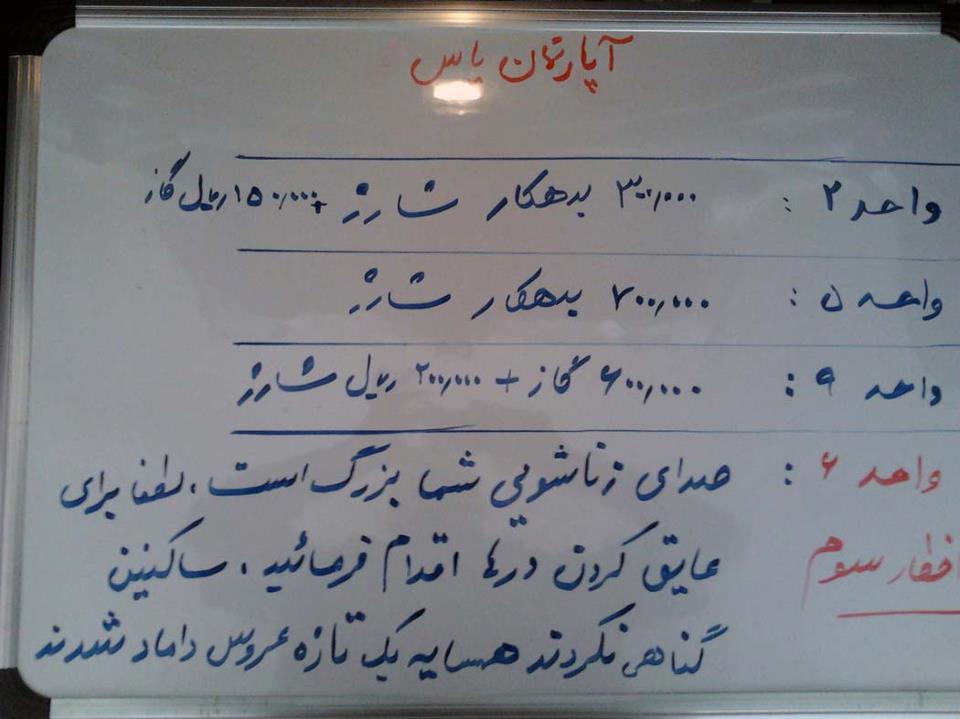 آپارتمان یاس
واحد ۲ : ۳۰۰,۰۰۰ بدهکار شارژ +۱۵۰,۰۰۰ ریال گاز
واحد ۵ : ۷۰۰,۰۰۰ بدهکار شارژ
واحد ۹ : ۶۰۰,۰۰۰ گاز + ۲۰۰,۰۰۰ ریال شارژ
واحد ۶ : صدای زناشویی شما بزرگ است ، لطفا برای
اخطار سوم عایق کردن درها اقدام فرمائید ، ساکنین
گناهی نکردند همسایه یک تازه عروس داماد شدند